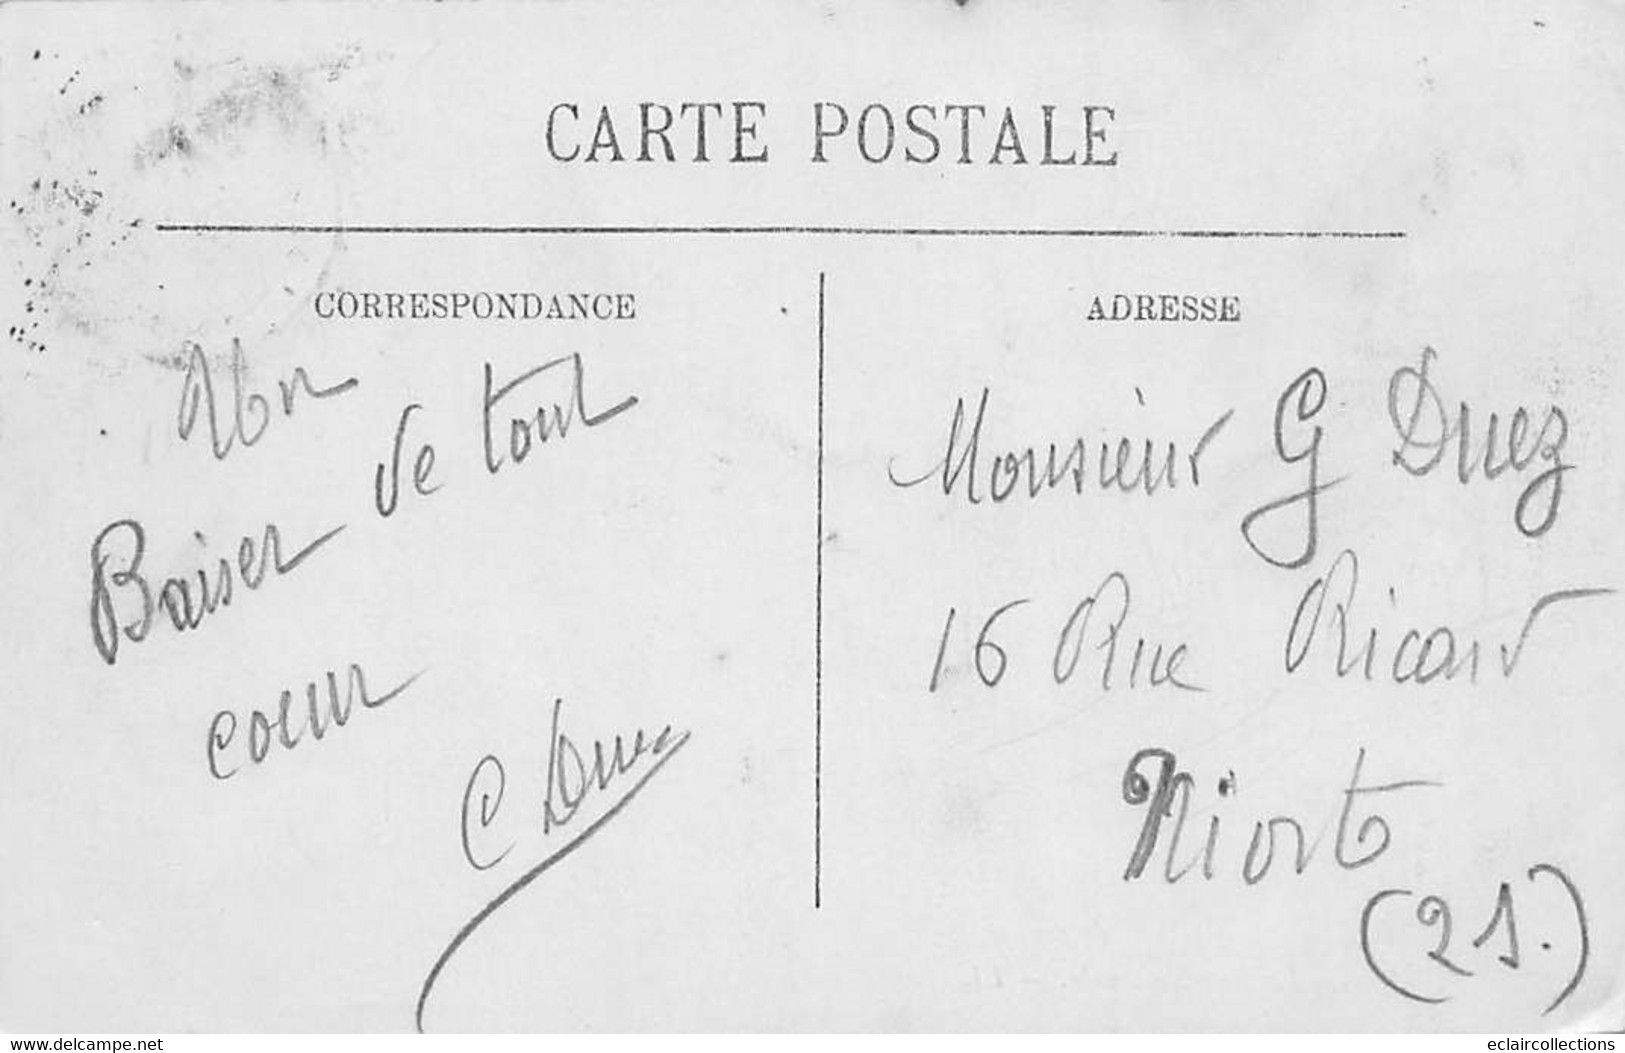 CARTE POSTALE
CORRESPONDANCE
Un
Baiser de tout
coeur
C Duez
ADRESSE
Monsieur G Duez
16 Rue Ricard
Niort
(2 S.)
www.delcampe.net
eclaircollections